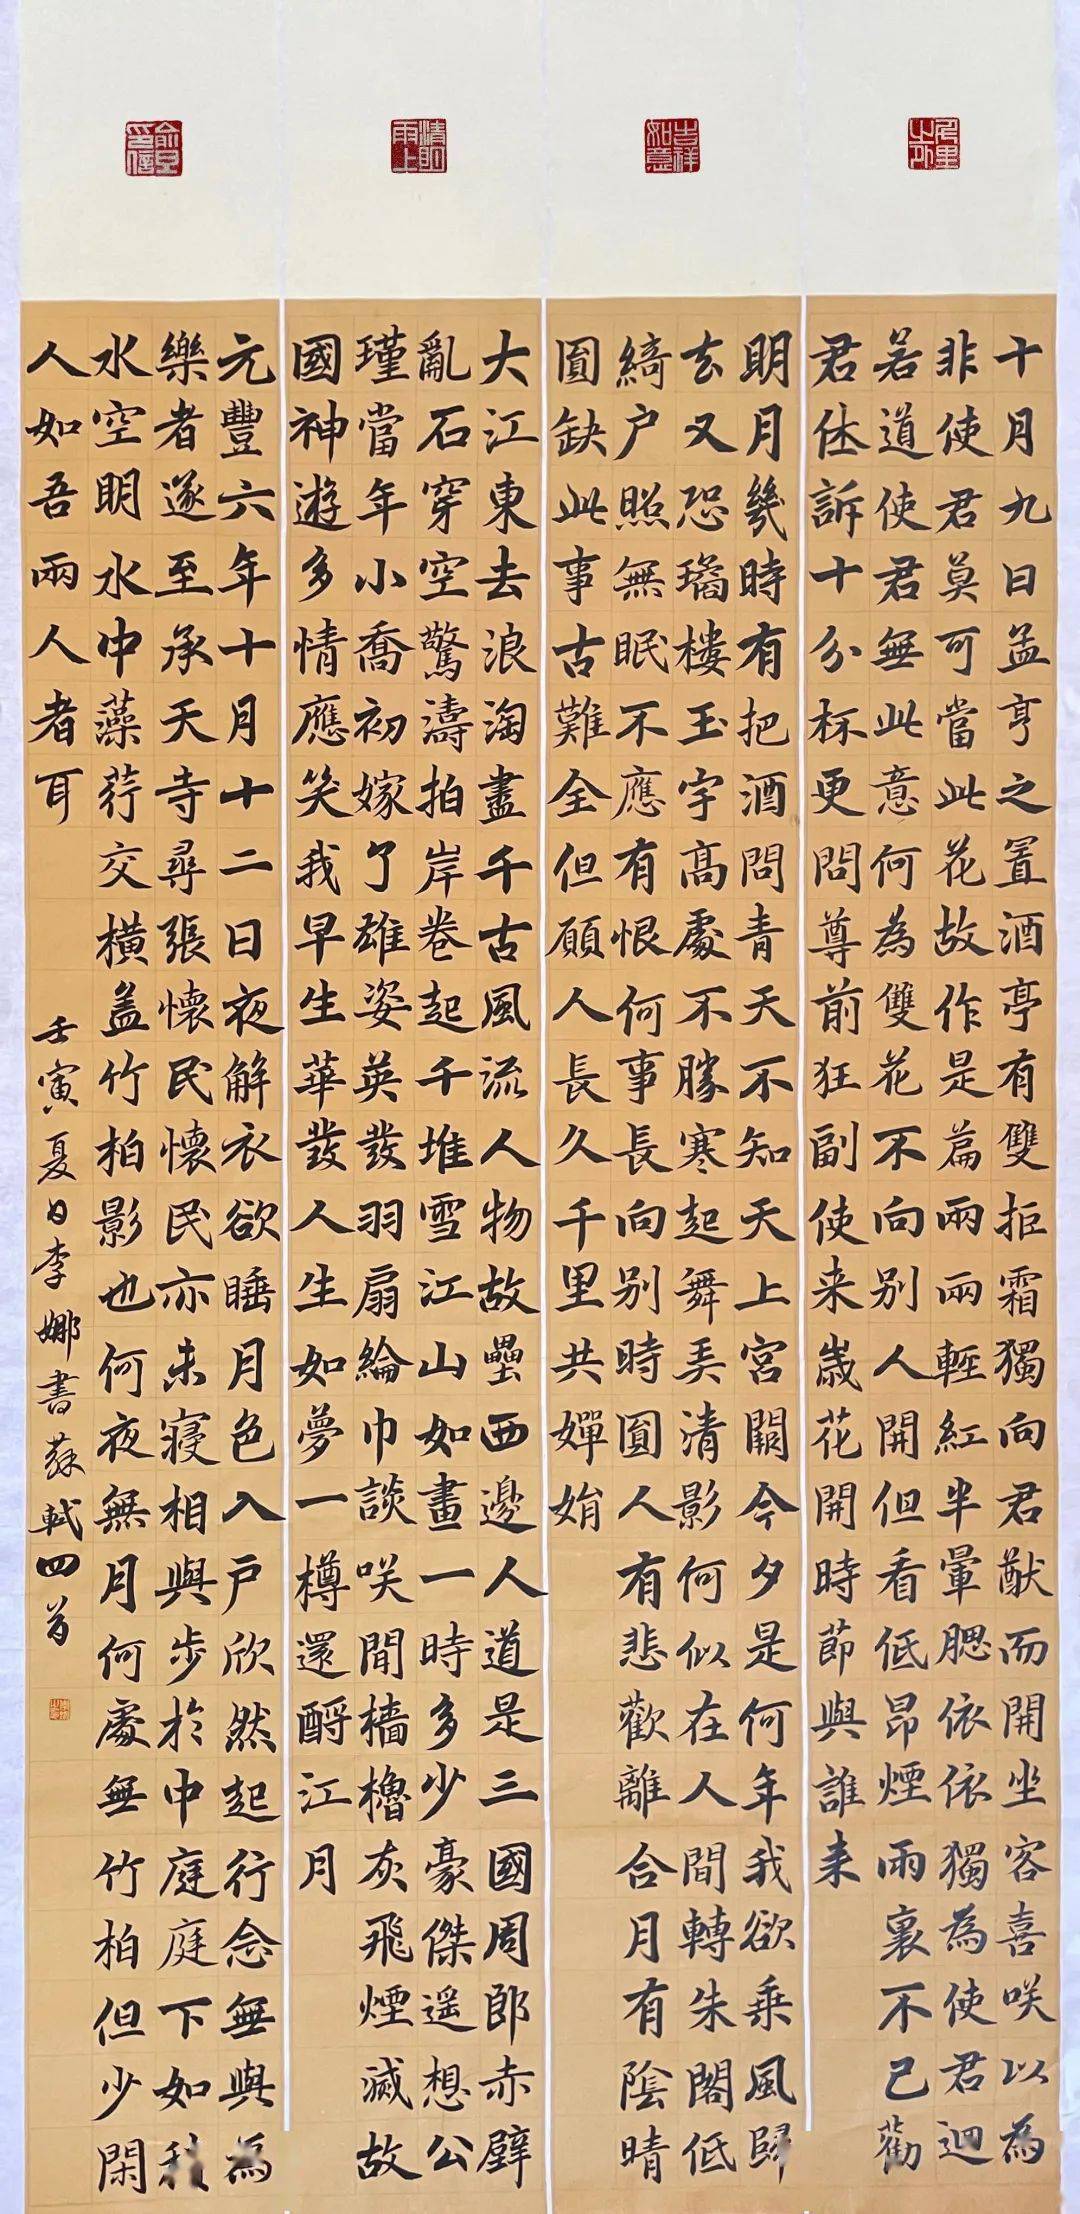 吉祥如意
清明雨上
十月九日孟亨之置酒亭有雙拒霜獨向君猷而開坐客喜咲以為
非使君莫可當此花故作是篇兩兩輕紅半暈腮依依獨為使君迴
若道使君無此意何為雙花不向別人開但看低昂煙雨裏不已勸
君休訴十分杯更問尊前狂副使来歲花開時節與誰来
明月幾時有把酒問青天不知天上宮闕今夕是何年我欲乘風歸
去又恐瓊樓玉宇高處不勝寒起舞弄清影何似在人間轉朱閣低
綺户照無眠不應有恨何事長向别時圓人有悲歡離合月有陰晴
圓缺此事古難全但願人長久千里共嬋娟
大江東去浪淘盡千古風流人物故壘西邊人道是三國周郎赤壁
亂石穿空驚濤拍岸卷起千堆雪江山如畫一時多少豪傑遥想公
瑾當年小喬初嫁了雄姿英發羽扇綸巾談咲間檣櫓灰飛煙滅故
國神遊多情應笑我早生華發人生如夢一樽還酹江月
元豐六年十月十二日夜解衣欲睡月色入户欣然起行念無與為
樂者遂至承天寺尋張懷民懷民亦未寢相與步於中庭庭下如積
水空明水中藻荇交橫蓋竹柏影也何夜無月何處無竹柏但少閑
人如吾兩人者耳
壬寅夏日李娜書蘇軾四首